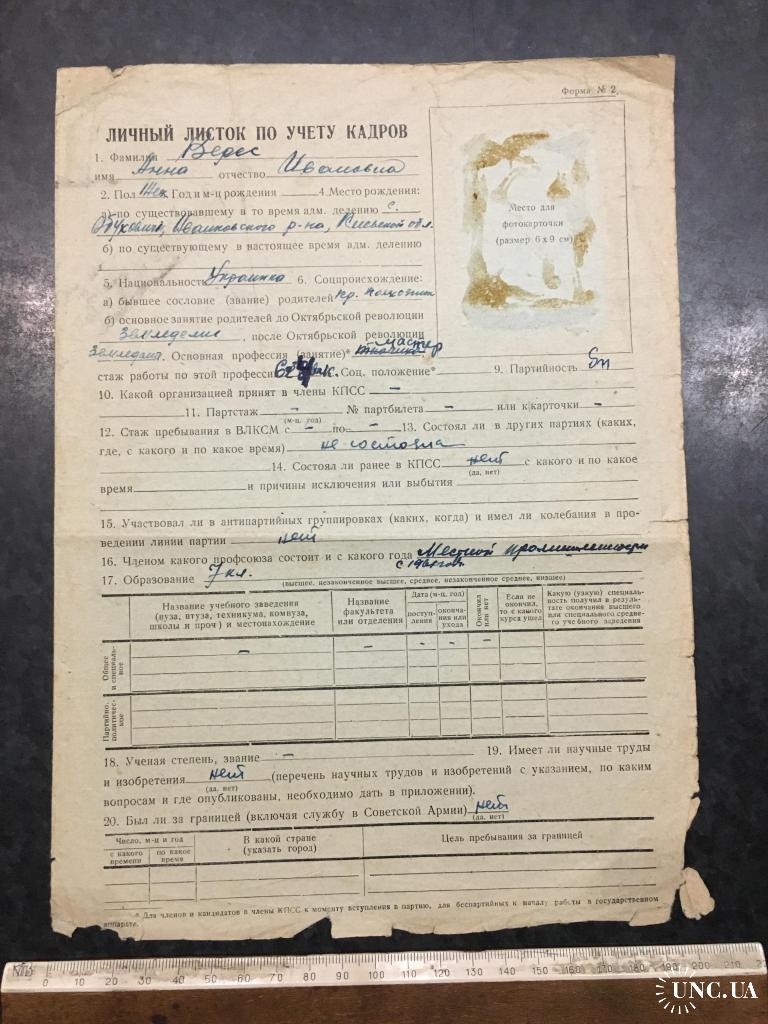 Форма № 2.
ЛИЧНЫЙ ЛИСТОК ПО УЧЕТУ КАДРОВ
1. Фамилия Верес
имя Анна отчество Ивановна
2. Пол Жен. Год и м-ц рождения 4. Место рождения:
а) по существовавшему в то время адм. делению с.
Обуховичи, Иванковского р-на, Киевской обл.
б) по существующему в настоящее время адм. делению
5. Национальность Украинка 6. Соцпроисхождение:
а) бывшее сословие (звание) родителей кр.
б) основное занятие родителей до Октябрьской революции
Земледелие, после Октябрьской революции
Земледел. Основная профессия (занятие)* мастер
стаж работы по этой профессии Соц. положение* 9. Партийность бп
10. Какой организацией принят в члены КПСС –
11. Партстаж – № партбилета – или к/карточки –
(м-ц, год)
12. Стаж пребывания в ВЛКСМ с – по – 13. Состоял ли в других партиях (каких,
где, с какого и по какое время) не состояла
14. Состоял ли ранее в КПСС нет с какого и по какое
(да, нет)
время и причины исключения или выбытия
15. Участвовал ли в антипартийных группировках (каких, когда) и имел ли колебания в про-
ведении линии партии нет
16. Членом какого профсоюза состоит и с какого года Местной промышленности
17. Образование 7 кл.
(высшее, незаконченное высшее, среднее, незаконченное среднее, низшее)
Название учебного заведения (вуза, втуза, техникума, комвуза, школы и проч) и местонахождение
Название факультета или отделения
Дата (м-ц, год)
поступления
окончания или ухода
Окончил или нет
Если не окончил, то с какого курса ушел
Какую (узкую) специальность получил в результате окончания высшего или специального среднего учебного заведения
Общее и специальное – – – – –
Партийно-политическое
18. Ученая степень, звание – 19. Имеет ли научные труды
и изобретения нет (перечень научных трудов и изобретений с указанием, по каким
(да, нет)
вопросам и где опубликованы, необходимо дать в приложении).
20. Был ли за границей (включая службу в Советской Армии) нет
(да, нет)
Число, м-ц и год
с какого времени
по какое время
В какой стране (указать город)
Цель пребывания за границей
* Для членов и кандидатов в члены КПСС к моменту вступления в партию, для беспартийных к началу работы в государственном
аппарате.
Место для
фотокарточки
(размер 6 х 9 см)
0 10 20 30 40 50 60 70 80 90 100 110 120 130 140 150 160 170 180 190 200 210
UNC.UA